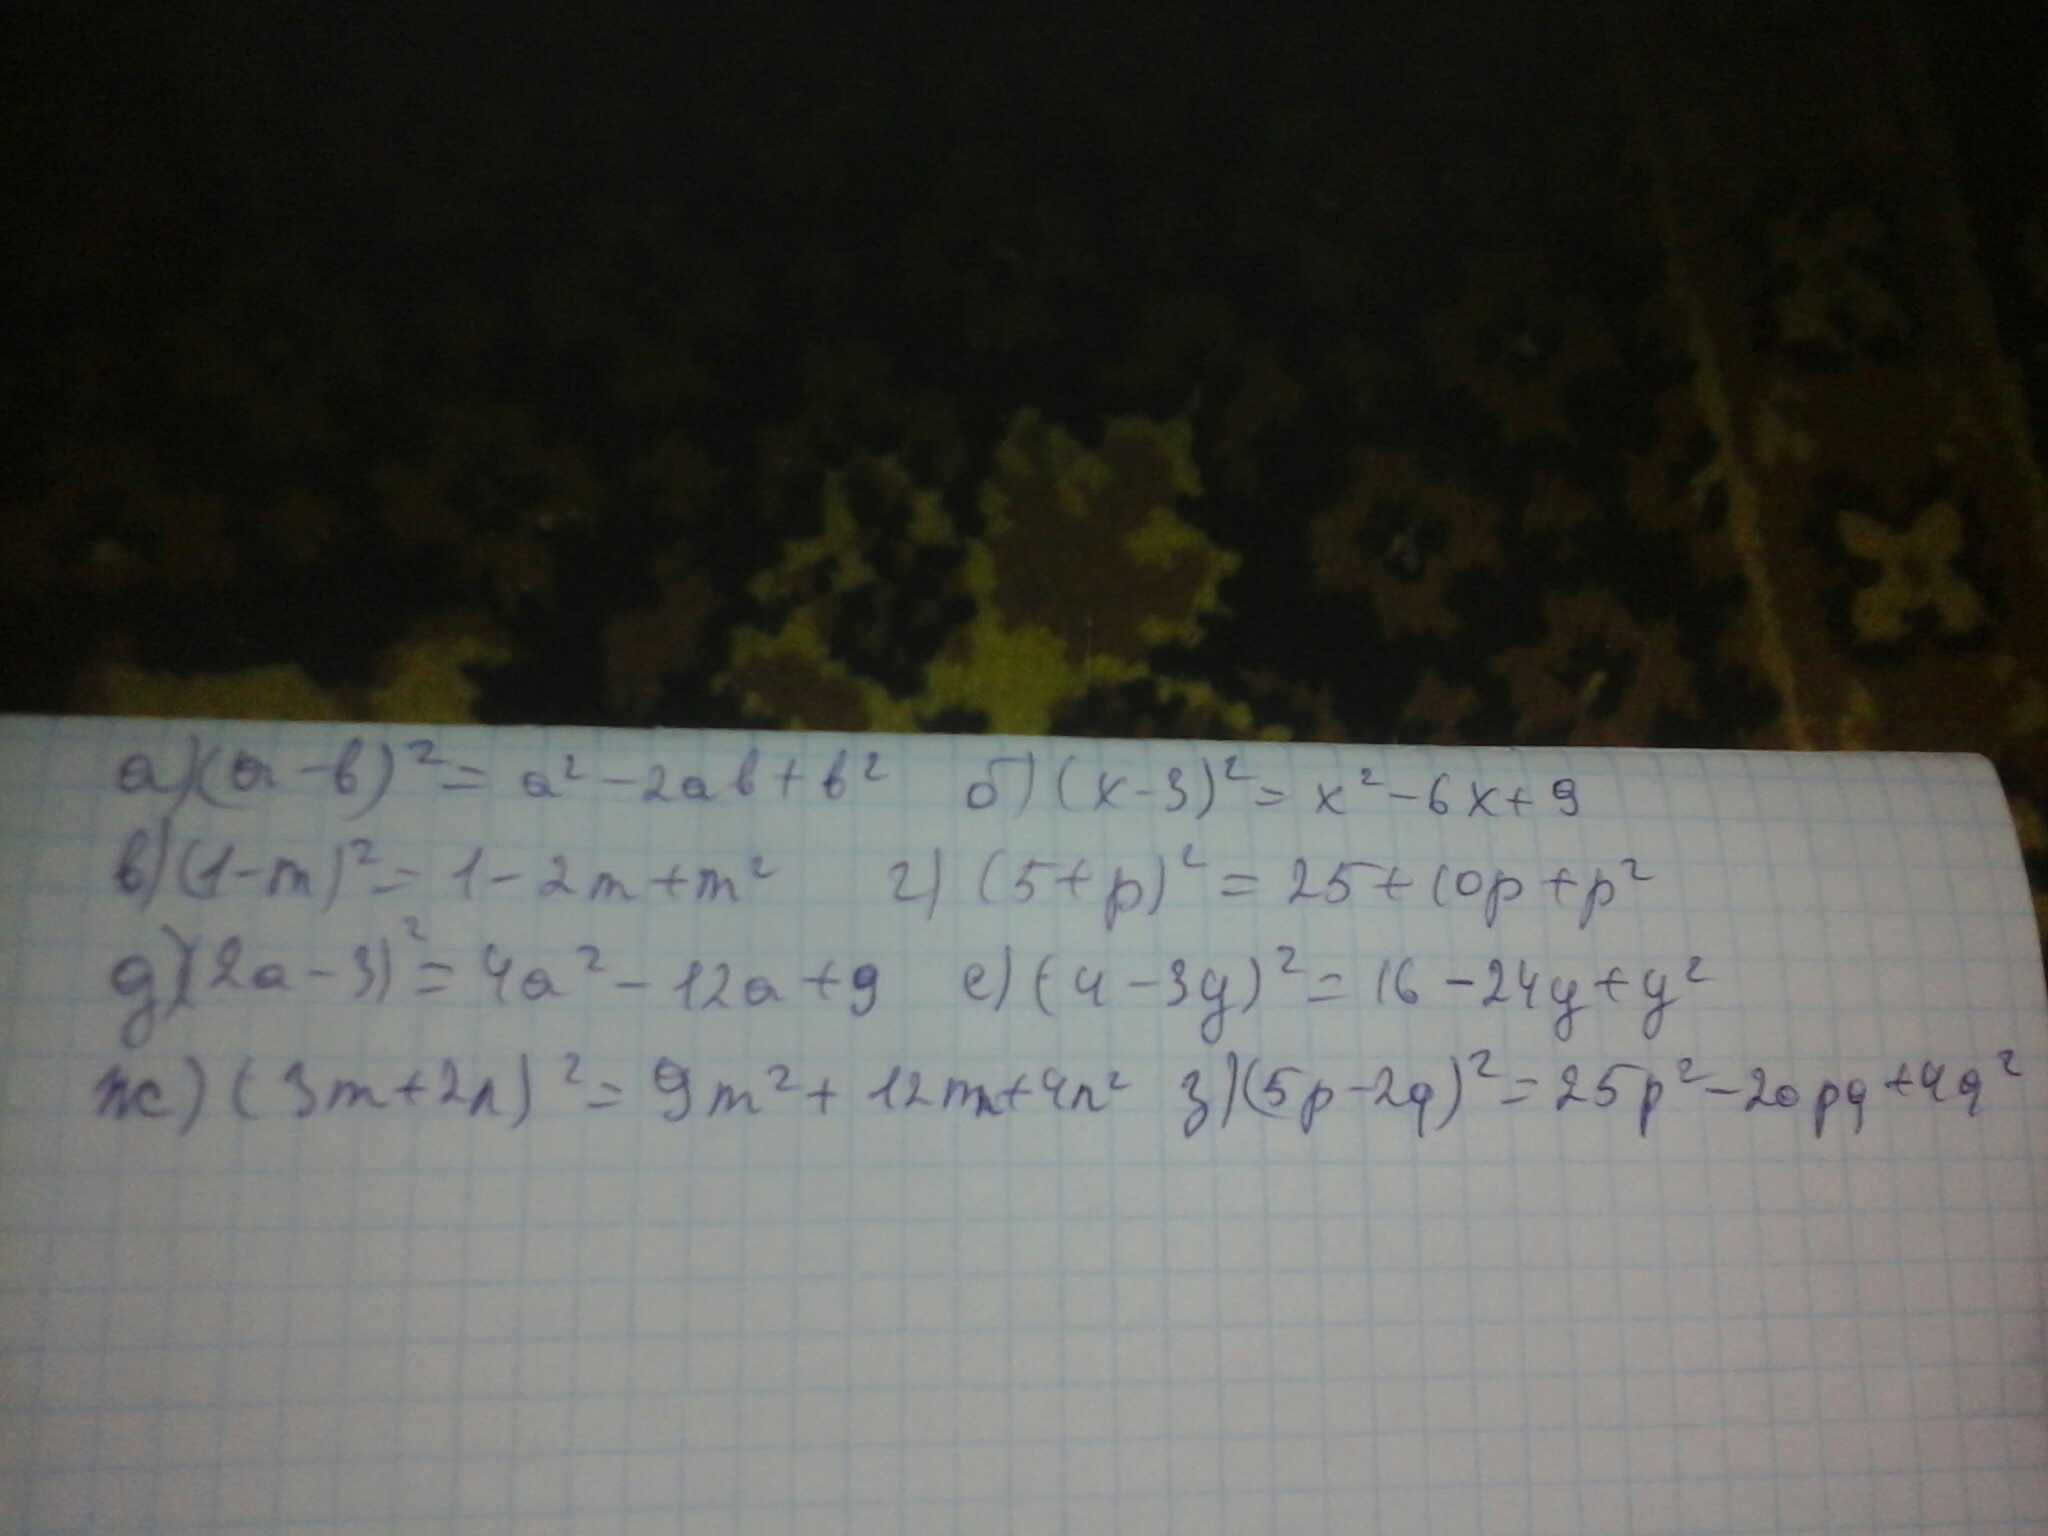 а) (a-b)² = a² - 2ab + b² б) (x-3)² = x² - 6x + 9
в) (1-m)² = 1 - 2m + m² г) (5+p)² = 25 + 10p + p²
д) (2a-3)² = 4a² - 12a + 9 е) (4-3y)² = 16 - 24y + y²
ж) (3m+2n)² = 9m² + 12mn + 4n² з) (5p-2q)² = 25p² - 20pq + 4q²